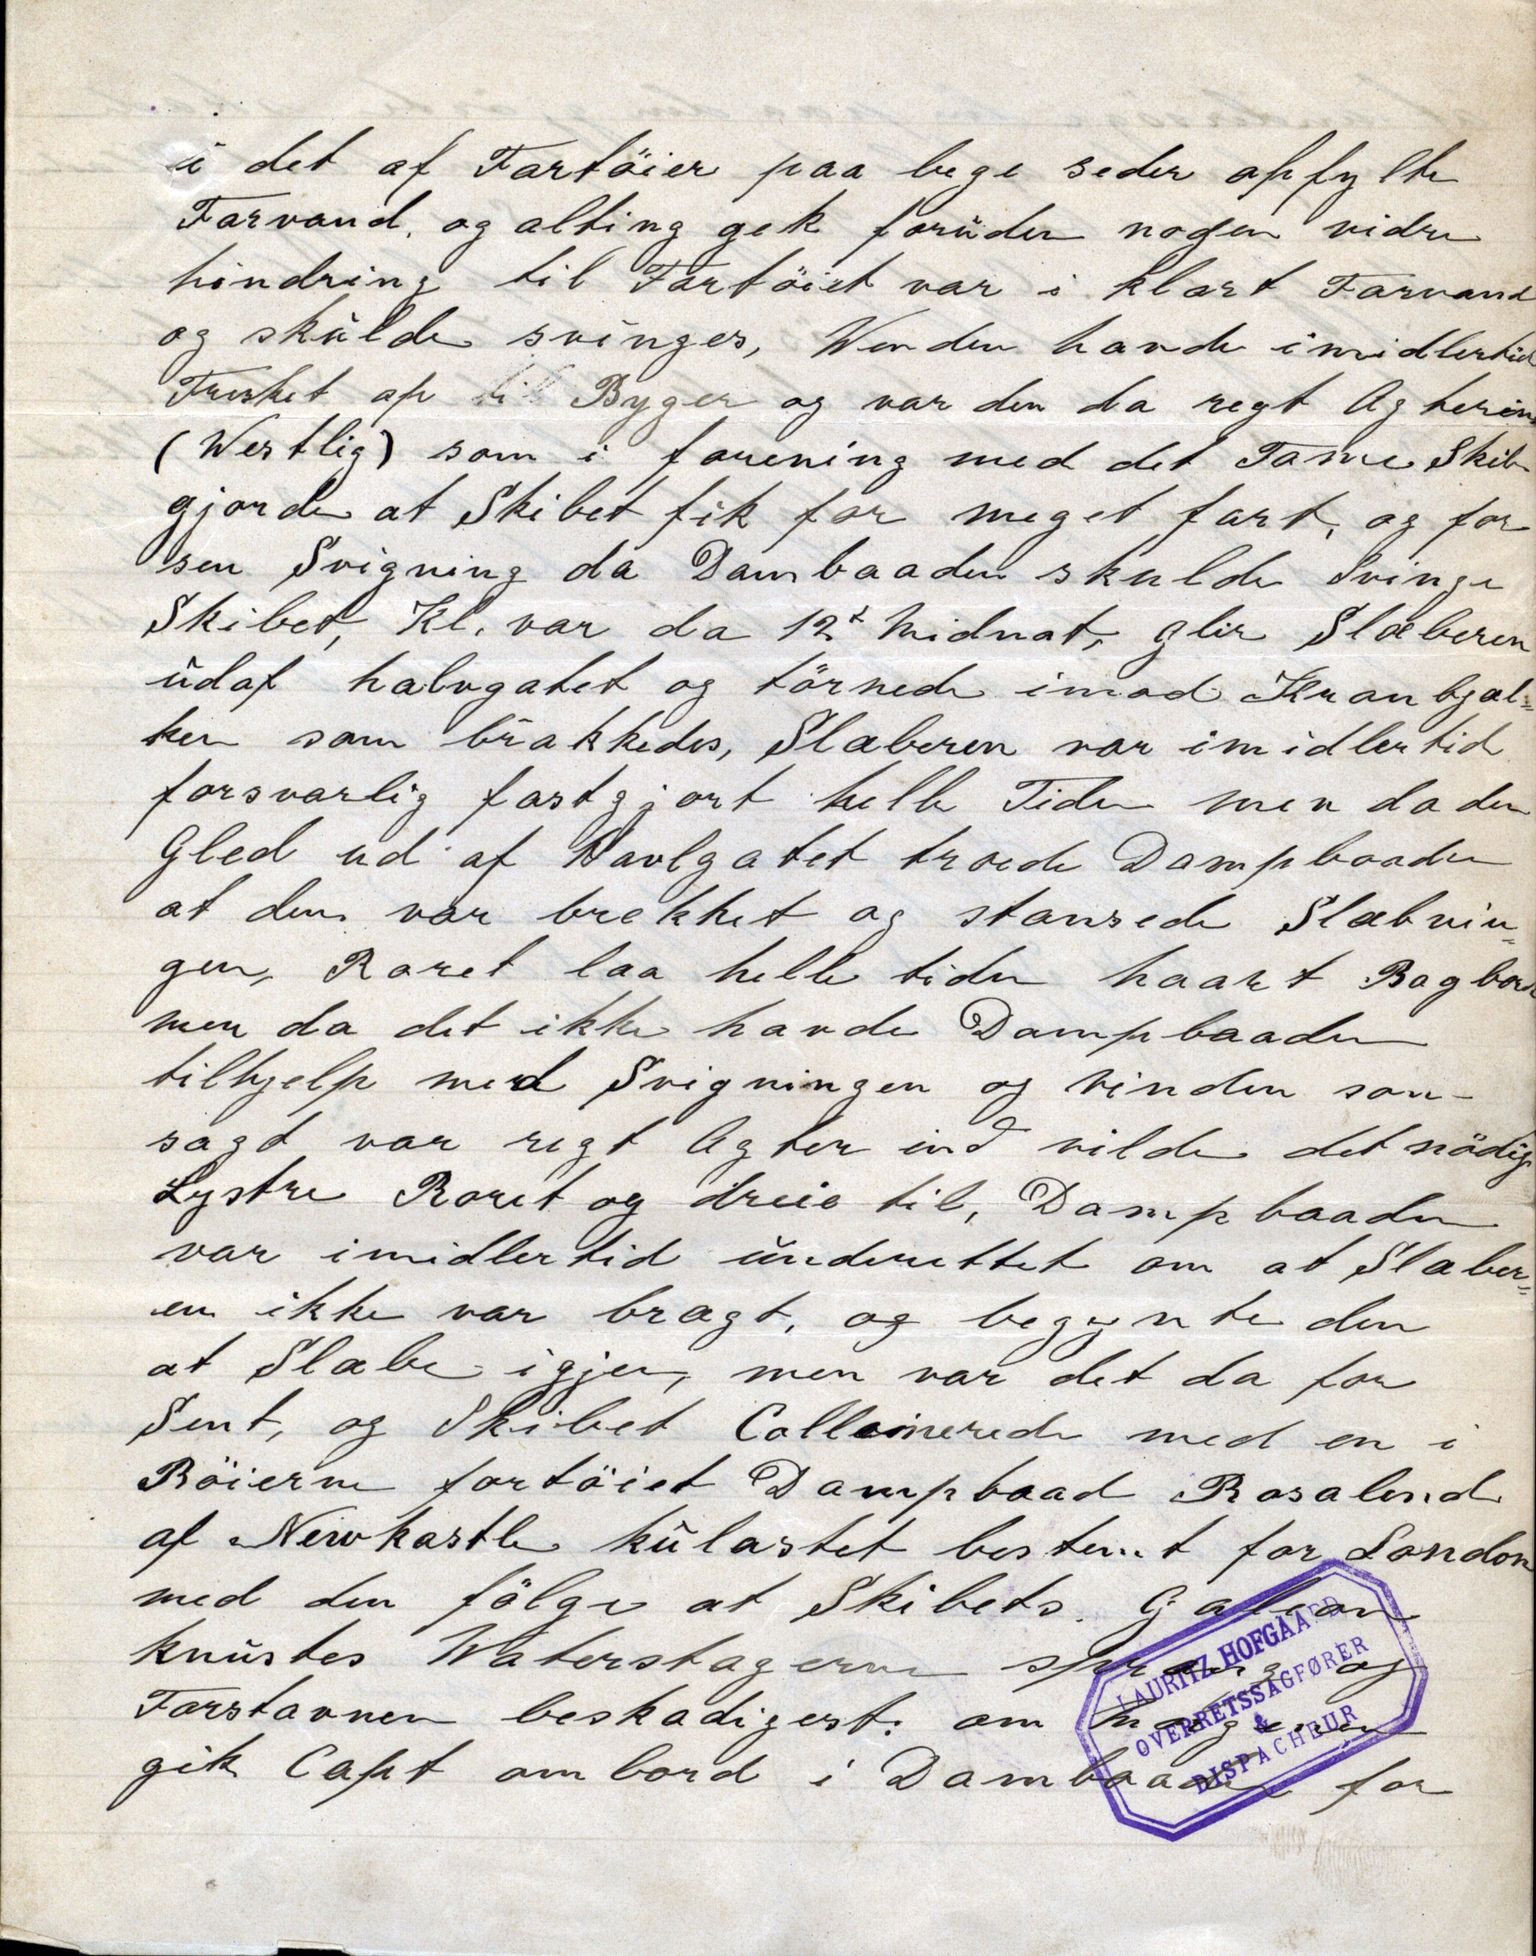 i det af Fartöier paa bege seder opfylte
Farvand, og alting gek foruden nogen vidre
hindring til Fartöiet var i klart Farvand
og skulde svinges, Venden havde imidlertid
Frisket op til Byger og var den da regt Agterind
(Westlig) som i forening med det Tome Skib
gjorde at Skibet fik for meget fart, og for
sen Svigning da Dambaaden skulde Svinge
Skibet, Kl. var da 12t Midnat, glir Slæberen
udaf halvgatet og törnede imod Kranbjæl=
ken som brækkedes, Slæberen var imidlertid
forsvarlig fastgjort helle Tiden men da den
Gled ud af Havlgatet troede Dampbaaden
at den var brekket og stansede Slæbnin=
gen, Roret laa helle tiden haart Bagbord
men da det ikke havde Dampbaaden
tilhjelp med Svigningen og vinden som-
sagt var regt Agter ind vilde det nödig
Lystre Roret og dreie til, Dampbaaden
var imidlertid underettet om at Slæber=
en ikke var brægt, og begynte den
at Slæbe igjen, men var det da for
Sent, og Skibet Colleinerede med en i
Böierne fortöiet Dampbaad Rosalend
af Newkastle kullastet bestemt for London
med den fölge at Skibets Galion
knustes Waterstagerne sprang og
Forstavnen beskadigest. om Morgenen
gik Capt ombord i Dambaaden for
LAURITZ HOFGAARD
OVERRETSSAGFØRER
&
DISPACHEUR